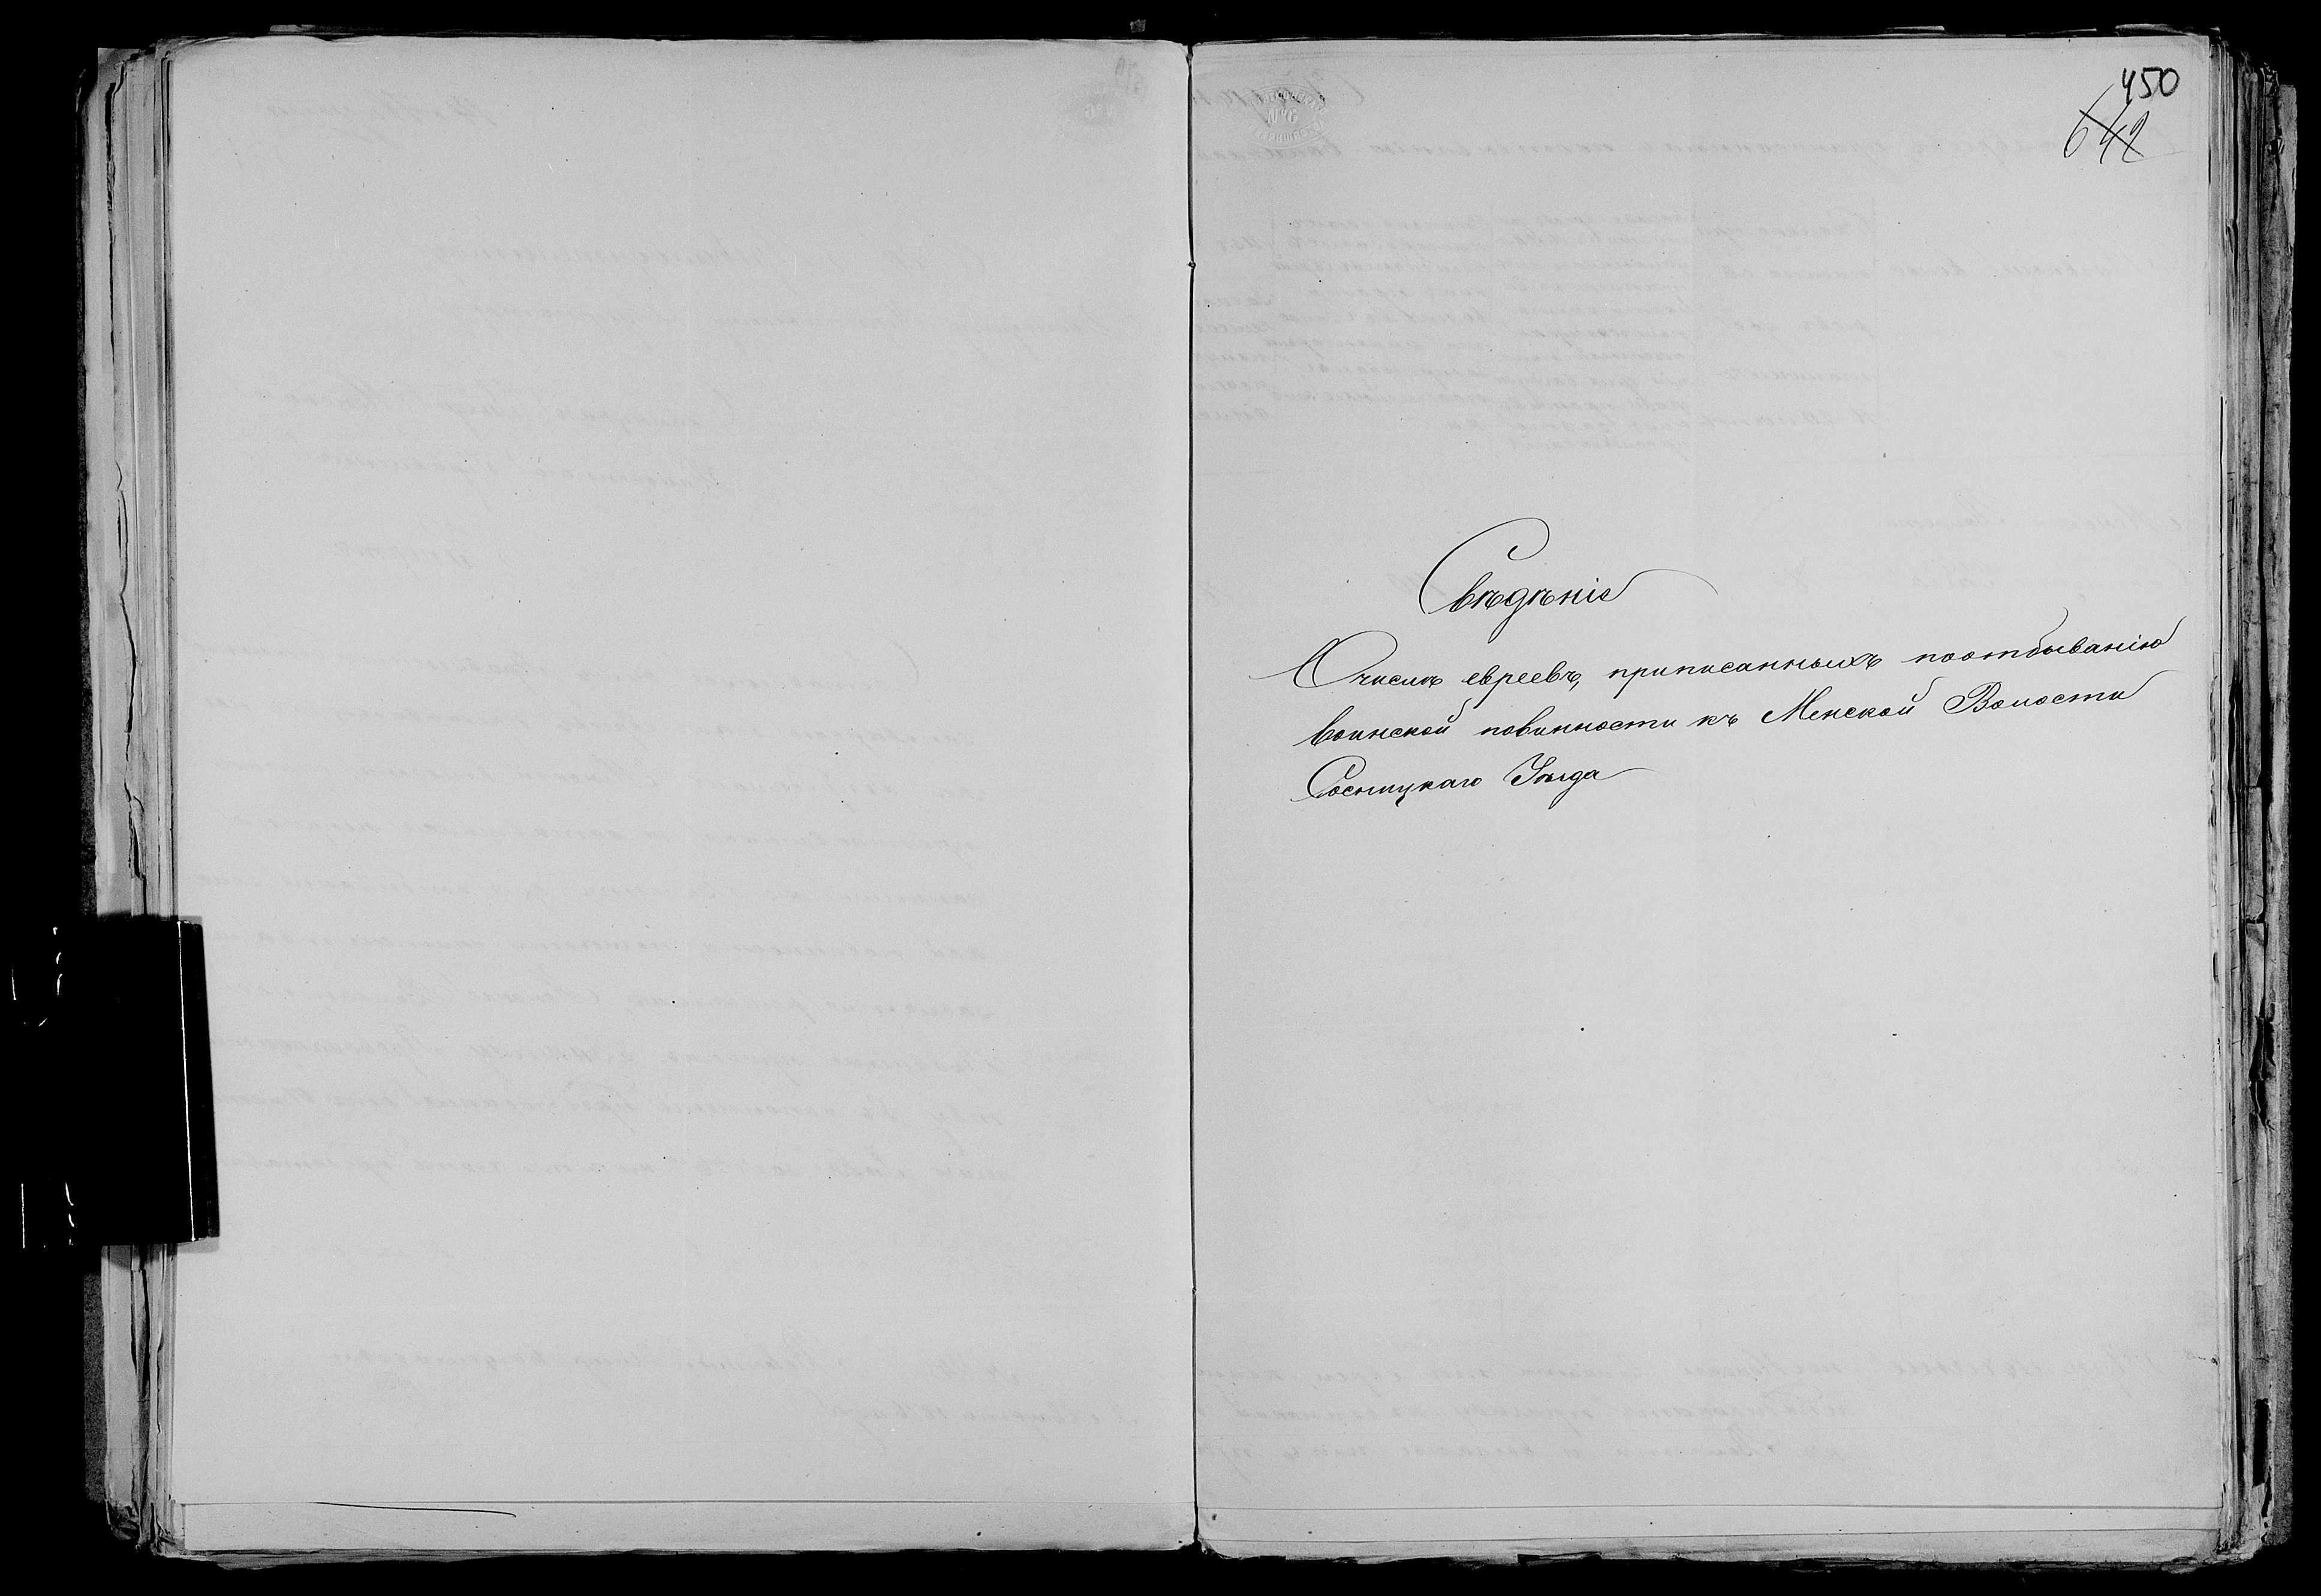 450
642
Свѣдѣніе
О числѣ евреевъ, приписанныхъ поотбыванію
воинской повинности къ Менской Волости
Сосницкаго Уѣзда